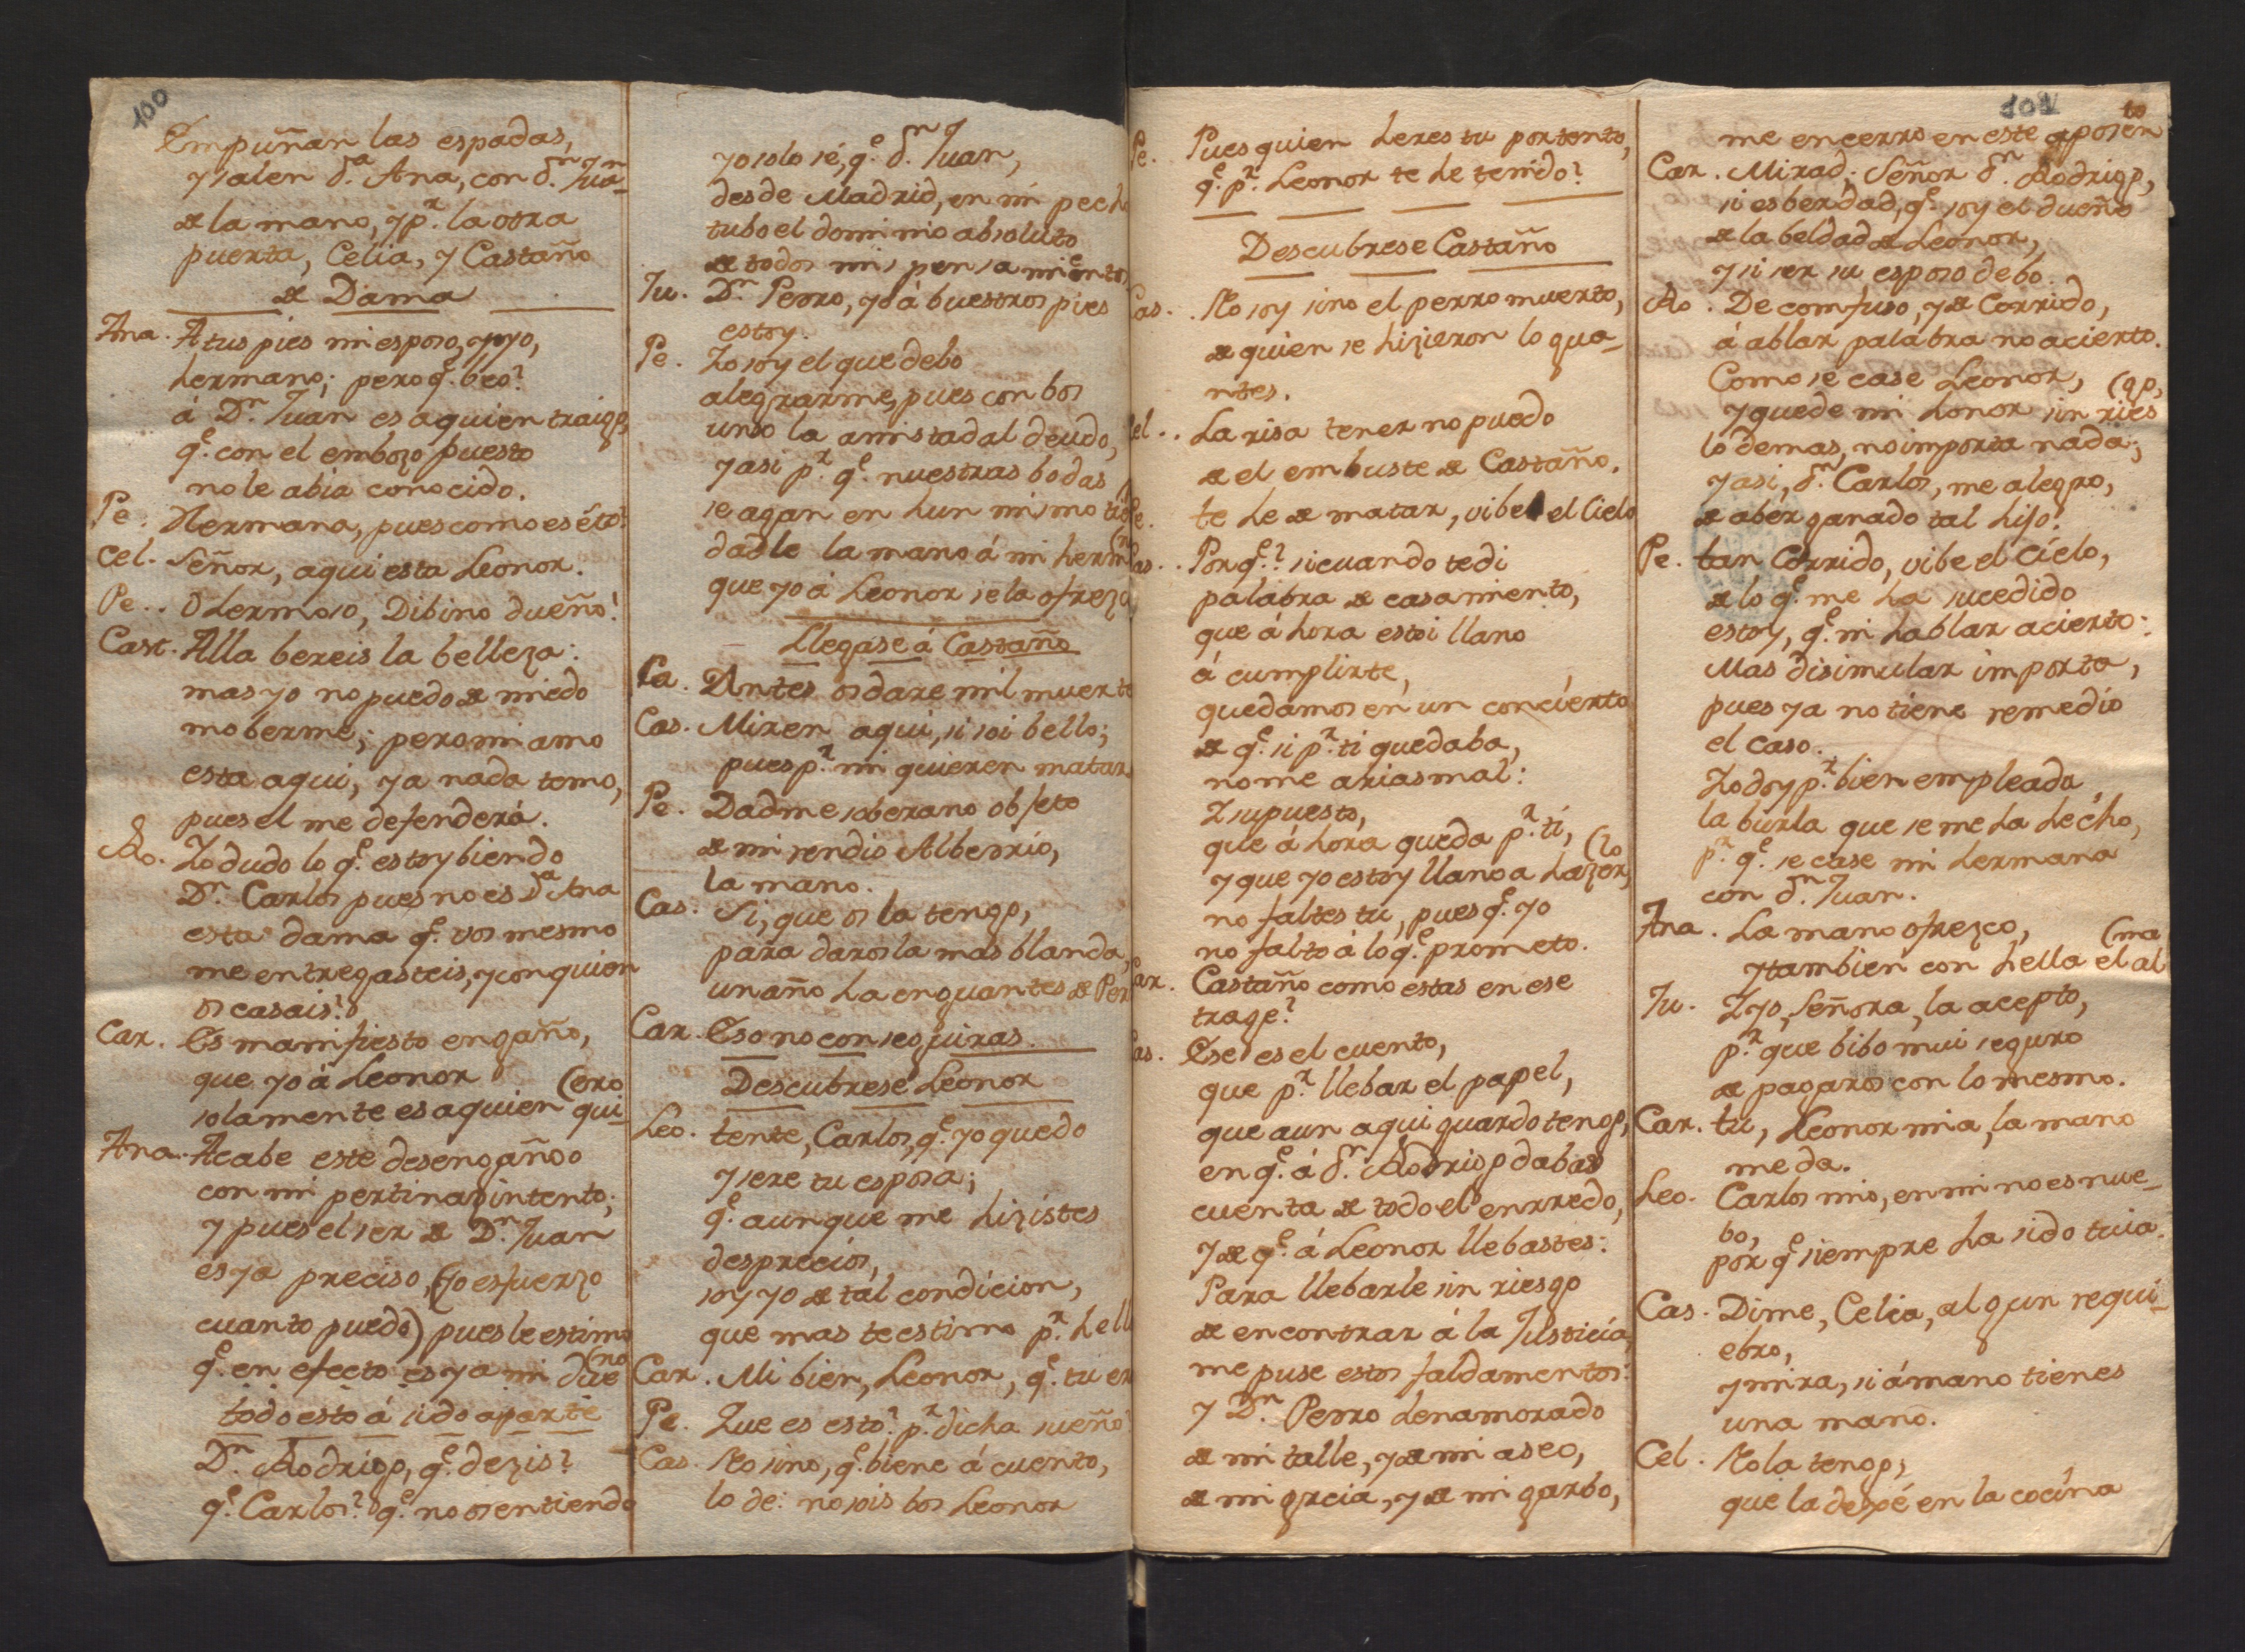 100
Empuñan las espadas,
y salen d.ª Ana, con d.n Jua-n
de la mano, y p.r la otra
puerta, Celia, y Castaño
de Dama
Ana. A tus pies mi esposo, y yo,
hermano; pero q.e beo?
á D.n Juan es a quien traigo,
q.e con el embozo puesto
no le abia conocido.
Pe. Hermana, pues como es ésto?
Cel. Señor, aqui esta Leonor.
Pe.. O hermoso, Dibino dueño!
Cast. Alla bereis la belleza:
mas yo no puedo de miedo
moberme; pero mi amo
esta aqui, ya nada temo,
pues el me defenderá.
Ro. Yo dudo lo q.e estoy biendo
D.n Carlos pues no es D.ª Ana
esta dama q.e vos mesmo
me entregasteis, y con quien
os casais?
Car. Es manifiesto engaño,
que yo á Leonor (ero
solamente es a quien qui-
Ana. Acabe este desengaño
con mi pertinaz intento;
y pues el ser de D.n Juan
es ya preciso, (yo esfuerzo
cuanto puedo) pues le estimo
q.e en efecto es ya mi due (no
todo esto á sido aparte
D.n Rodrigo, q.e dezis?
q.e Carlos? q.e no os entiendo
yo solo sé, q.e d.n Juan,
desde Madrid, en mi pecho
tubo el dominio absoluto
de todos mis pensamientos
Ju. D.n Perro, yo á buestros pies
estoy.
Pe. Yo soy el que debo
alegrarme, pues con bos
uno la amistad al deudo,
y asi p.r q.e nuestras bodas
se agan en hun mismo ti
dadle la mano á mi herm
que yo á Leonor se la ofrezo
Llegase á Castaño
Ca. Antes os dare mil muerte
Cas. Miren aqui, si soi bello;
pues p.r mi quieren matar
Pe. Dadme soberano objeto
de mi rendio Albedrio,
la mano.
Cas. Si, que os la tengo,
para darosla mas blanda,
un año ha en guantes de Per
Car. Eso no conseguiras.
Descubrese Leonor
Leo. tente, Carlos, q.e yo quedo
y sere tu esposa;
q.e aunque me hizistes
desprecios,
soy yo de tal condicion,
que mas te estimo p.r hell
Car. Mi bien, Leonor, q.e tu er
Pe. Que es esto? p.r dicha sueño
Cas. No sino, q.e biene á cuento,
lo de: no sois bos Leonor
101
Pe. Pues quien heres tu portento,
q.e p.r Leonor te he tenido?
Descubrese Castaño
Cas.. No soy sino el perro muerto,
de quien se hizieron lo gua-
ntes.
Cel.. La risa tener no puedo
de el embuste de Castaño.
Pe. te he de matar, vibe el Cielo
Cas.. Porq.e? si cuando te di
palabra de casamiento,
que á hora estoi llano
á cumplirte,
quedamos en un concierto
de q.e si p.r ti quedaba,
no me arias mal:
Y supuesto,
que á hora queda p.r ti, (lo
y que yo estoy llano a hazer,
no faltes tu, pues q.e yo
no falto á lo q.e prometo.
Car. Castaño como estas en ese
trage?
Cas. Ese es el cuento,
que p.r llebar el papel,
que aun aqui guardo tengo,
en q.e á d.n Rodrigo dabas
cuenta de todo el enrredo,
y de q.e á Leonor llebastes:
Para llebarle sin riesgo
de encontrar á la Justicia,
me puse estos faldamentos:
y D.n Perro henamorado
de mi talle, y de mi aseo,
de mi grcia, y de mi garbo,
me encerro en este aposen
to
Car. Mirad; Señor d.n Rodrigo,
si es berdad, q.e soy el dueño
de la beldad de Leonor,
y si ser su esposo debo.
Ro. De comfuso, y de Corrido,
á ablar palabra no acierto.
Como se case Leonor, (go,
y quede mi honor sin ries
lo demas, no importa nada;
y asi, d.n Carlos, me alegro,
de aber ganado tal hijo.
Pe. tan Corrido, vibe el cielo,
de lo q.e me ha sucedido
estoy, q.e ni hablar acierto:
Mas disimular importa,
pues ya no tiene remedio
el caso.
Yo doy p.r bien empleada
la burla que se me ha hecho,
p.r q.e se case mi hermana
con d.n Juan.
Ana. La mano ofrezco, (ma
y tambien con hella el al
Ju. Y yo, Señora, la acepto,
p.r que bibo mui seguro
de pagaros con lo mesmo.
Car. tu, Leonor mia, la mano
me da.
Leo. Carlos mio, en mi no es nue-
bo,
por q.e siempre ha sido tuia.
Cas. Dime, Celia, algun requi-
ebro,
y mira, si á mano tienes
una mano.
Cel. No la tengo,
que la dexé en la cocina